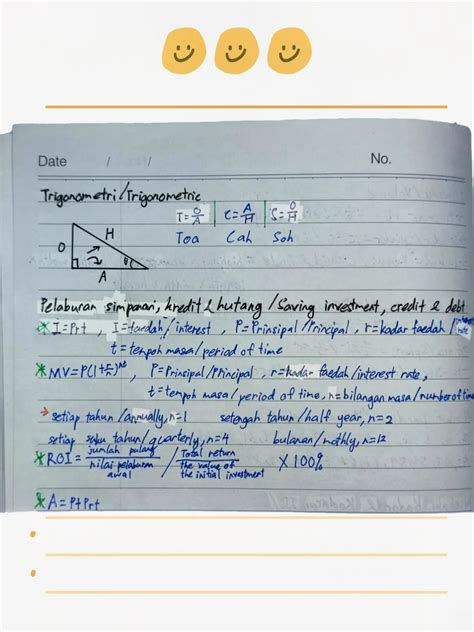 Date / / No.
Trigonometri/Trigonometric
T=O/A | C=A/H | S=O/H
Toa Cah Soh
O H A θ
Pelaburan simpanan, kredit & hutang/Saving investment, credit & debt
* I=Prt, I=faedah/interest, P=Prinsipal/Principal, r=kadar faedah/
t=tempoh masa/period of time
* MV=P(1+r/n)^nt, P=Prinsipal/Principal, r=kadar faedah/interest rate,
t=tempoh masa/period of time, n=bilangan masa/number of time
→ setiap tahun/annually, n=1 setengah tahun/half year, n=2
setiap suku tahun/quarterly, n=4 bulanan/mothly, n=12
* ROI = jumlah pulangan/nilai pelaburan awal / Total return/the value of the initial investment × 100%
* A=P+Prt